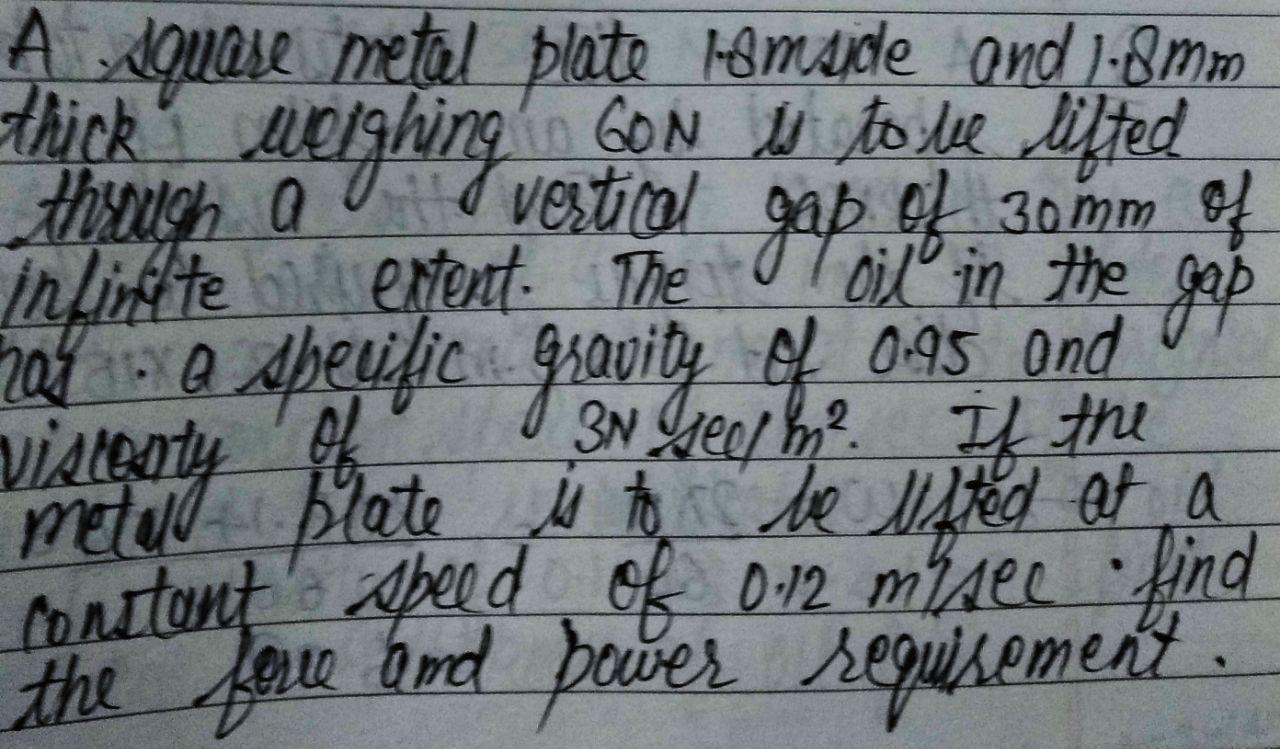 A square metal plate 1.8m side and 1.8mm
thick weighing 60N is to be lifted
through a vertical gap of 30mm of
infinite extent. The oil in the gap
has a specific gravity of 0.95 and
viscosity of 3N sec/m². If the
metal plate is to be lifted at a
constant speed of 0.12 m/sec . find
the force and power requirement.